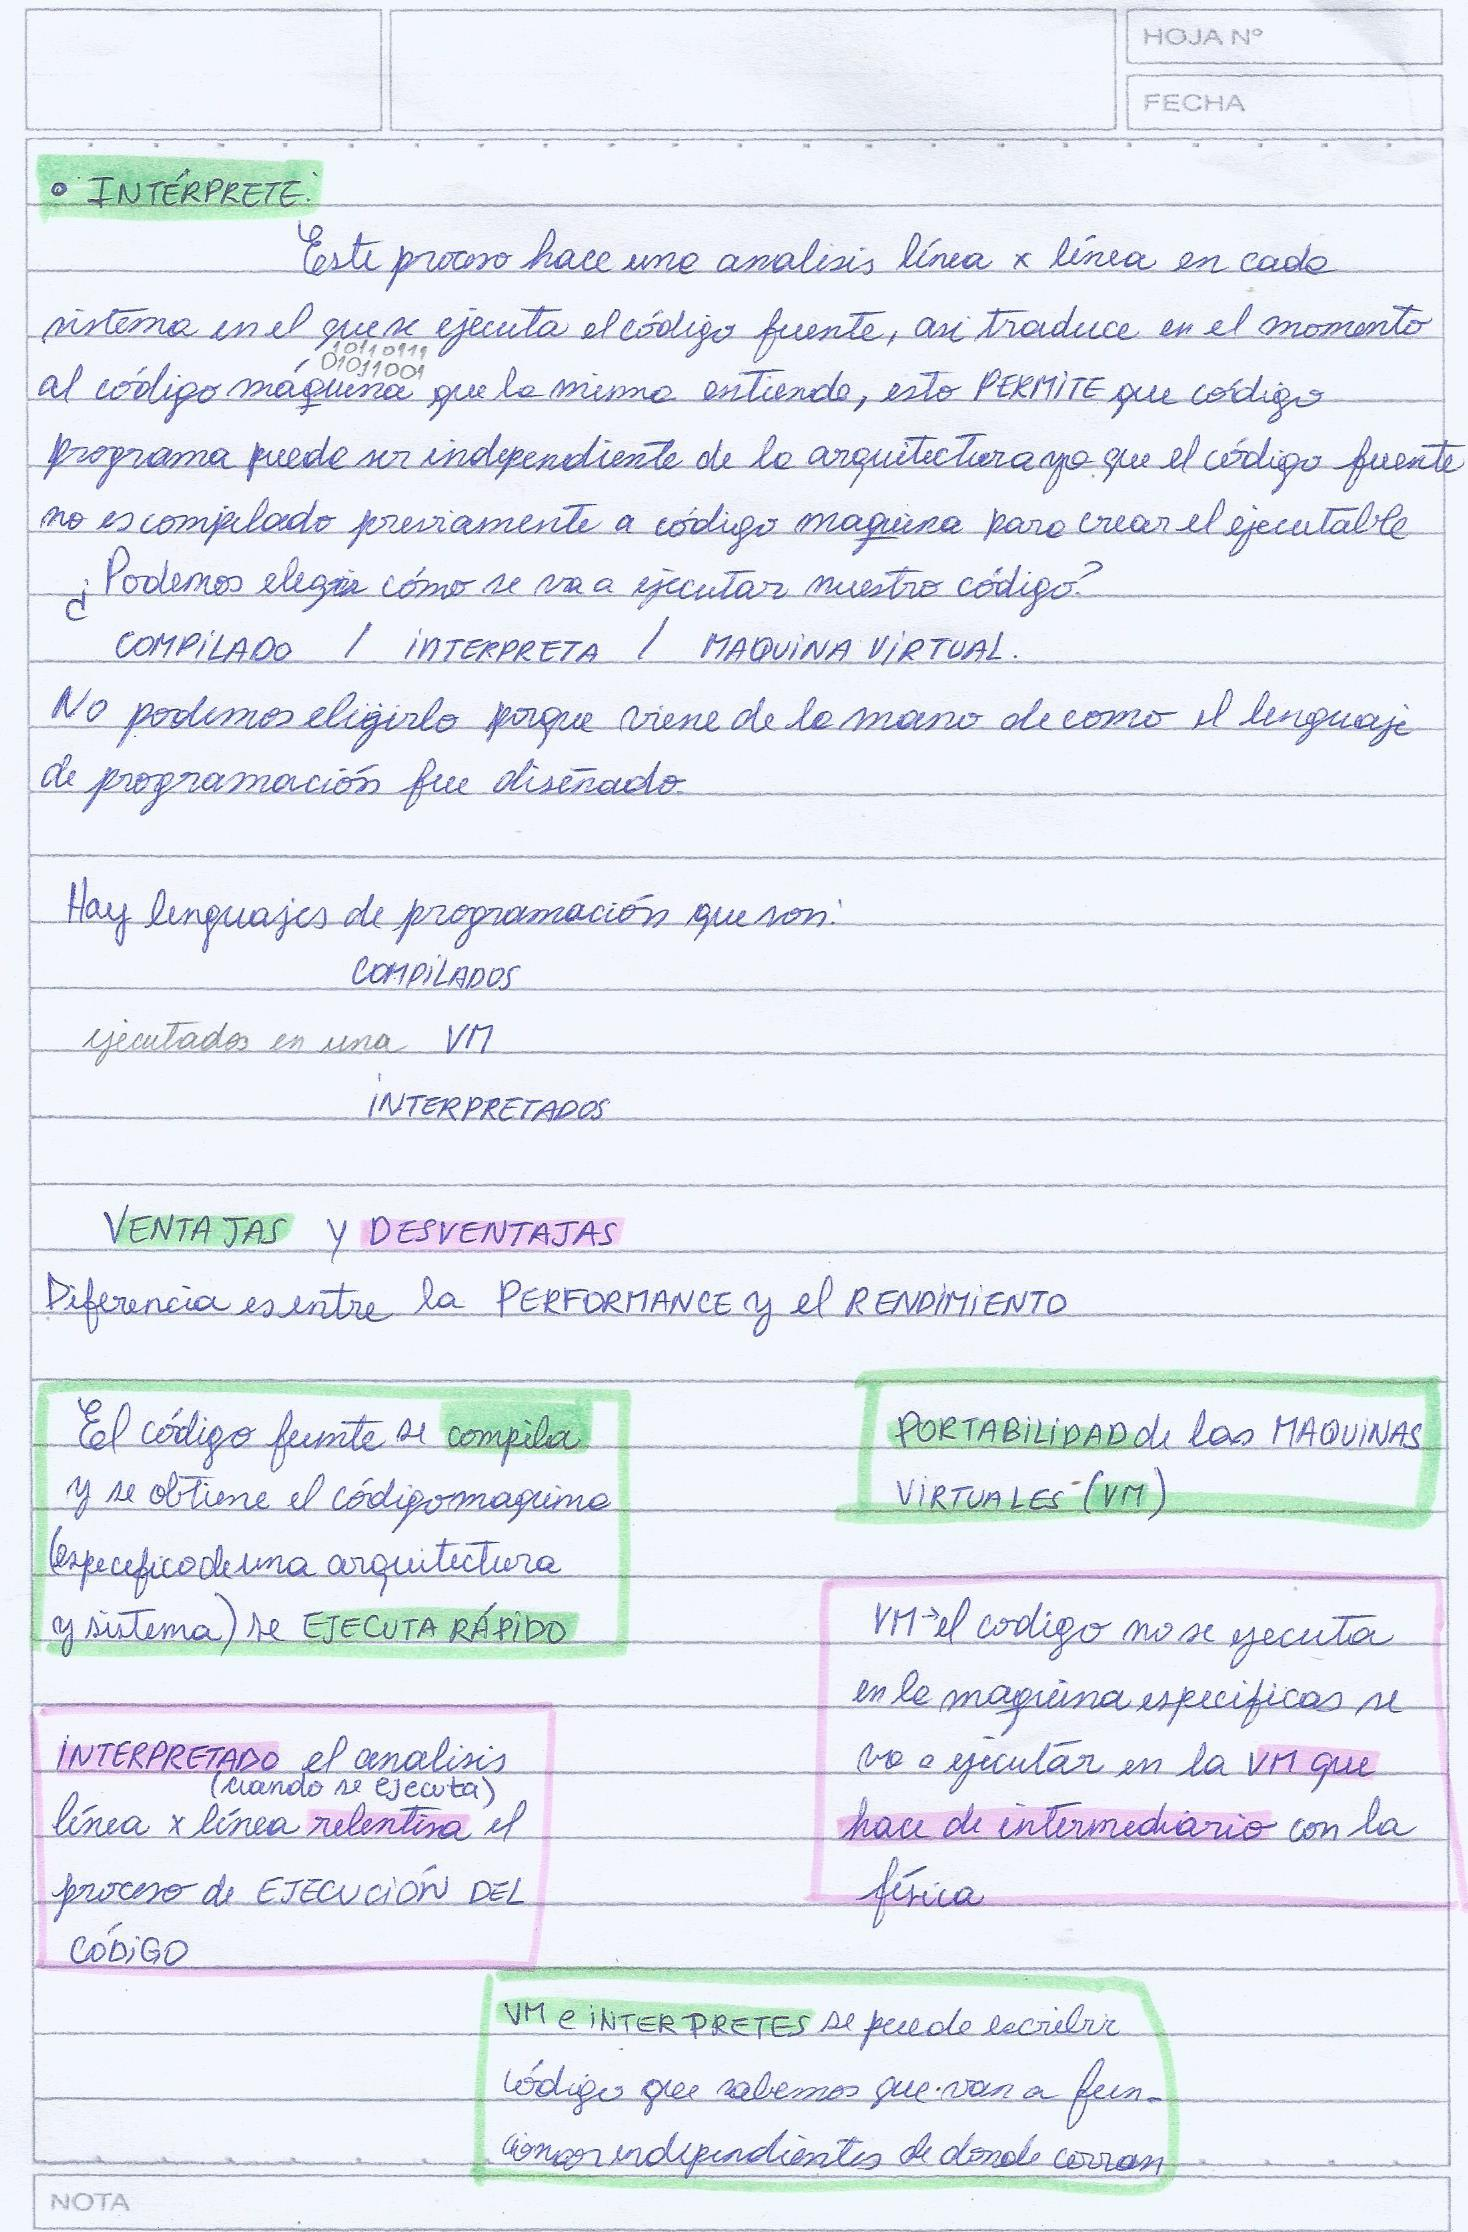 HOJA Nº
FECHA
• INTÉRPRETE:
Este proceso hace una analisis línea x línea en cada
sistema en el que se ejecuta el código fuente, asi traduce en el momento
10110111
01011001
al código máquina que la misma entiende, esto PERMITE que código
programa puede ser independiente de la arquitectura ya que el código fuente
no es compilado previamente a código maquina para crear el ejecutable
¿Podemos elegir cómo se va a ejecutar nuestro código?
COMPILADO / INTERPRETA / MAQUINA VIRTUAL.
No podemos eligirlo porque viene de la mano de como el lenguaje
de programación fue diseñado.
Hay lenguajes de programación que son:
COMPILADOS
ejecutados en una VM
INTERPRETADOS
VENTAJAS y DESVENTAJAS
Diferencia es entre la PERFORMANCE y el RENDIMIENTO
El código fuente se compila
y se obtiene el código maquina
(especefico de una arquitectura
y sistema) se EJECUTA RÁPIDO
PORTABILIDAD de las MAQUINAS
VIRTUALES (VM)
VM→el codigo no se ejecuta
en la maquina especificas se
va a ejecutar en la VM que
hace de intermediario con la
física
INTERPRETADO el analisis
(cuando se ejecuta)
línea x línea relentiza el
proceso de EJECUCIÓN DEL
CÓDIGO
VM e INTERPRETES se puede escribir
código que sabemos que van a fun-
cionar independientes de donde corran
NOTA